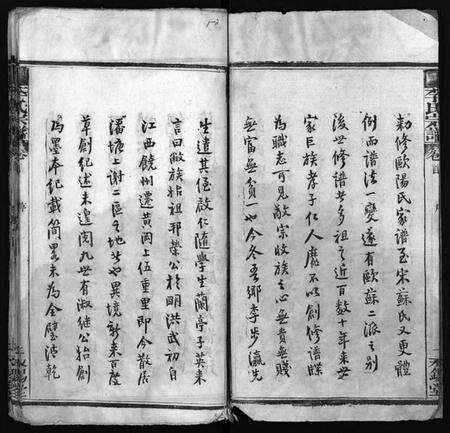 勅修歐陽氏家譜至宋蘇氏又更體
例而譜法一變遂有歐蘇二派之別
後世修譜者多祖之近百數十年來世
家巨族孝子仁人靡不以創修譜牒
為職志可見敬宗收族之心無貴無賤
無富無貧一也今冬吾鄉李步瀛先
生遣其侄啟仁隨學生蘭亭子英來
言曰敝族始祖耶榮公於明洪武初自
江西饒州遷黃岡上伍重里即今散居
潘塘上謝二區之地者也異境新來百度
草創紀述未遑閱九世有淑继公始創
為墨本紀載簡畧未為全璧沿乾